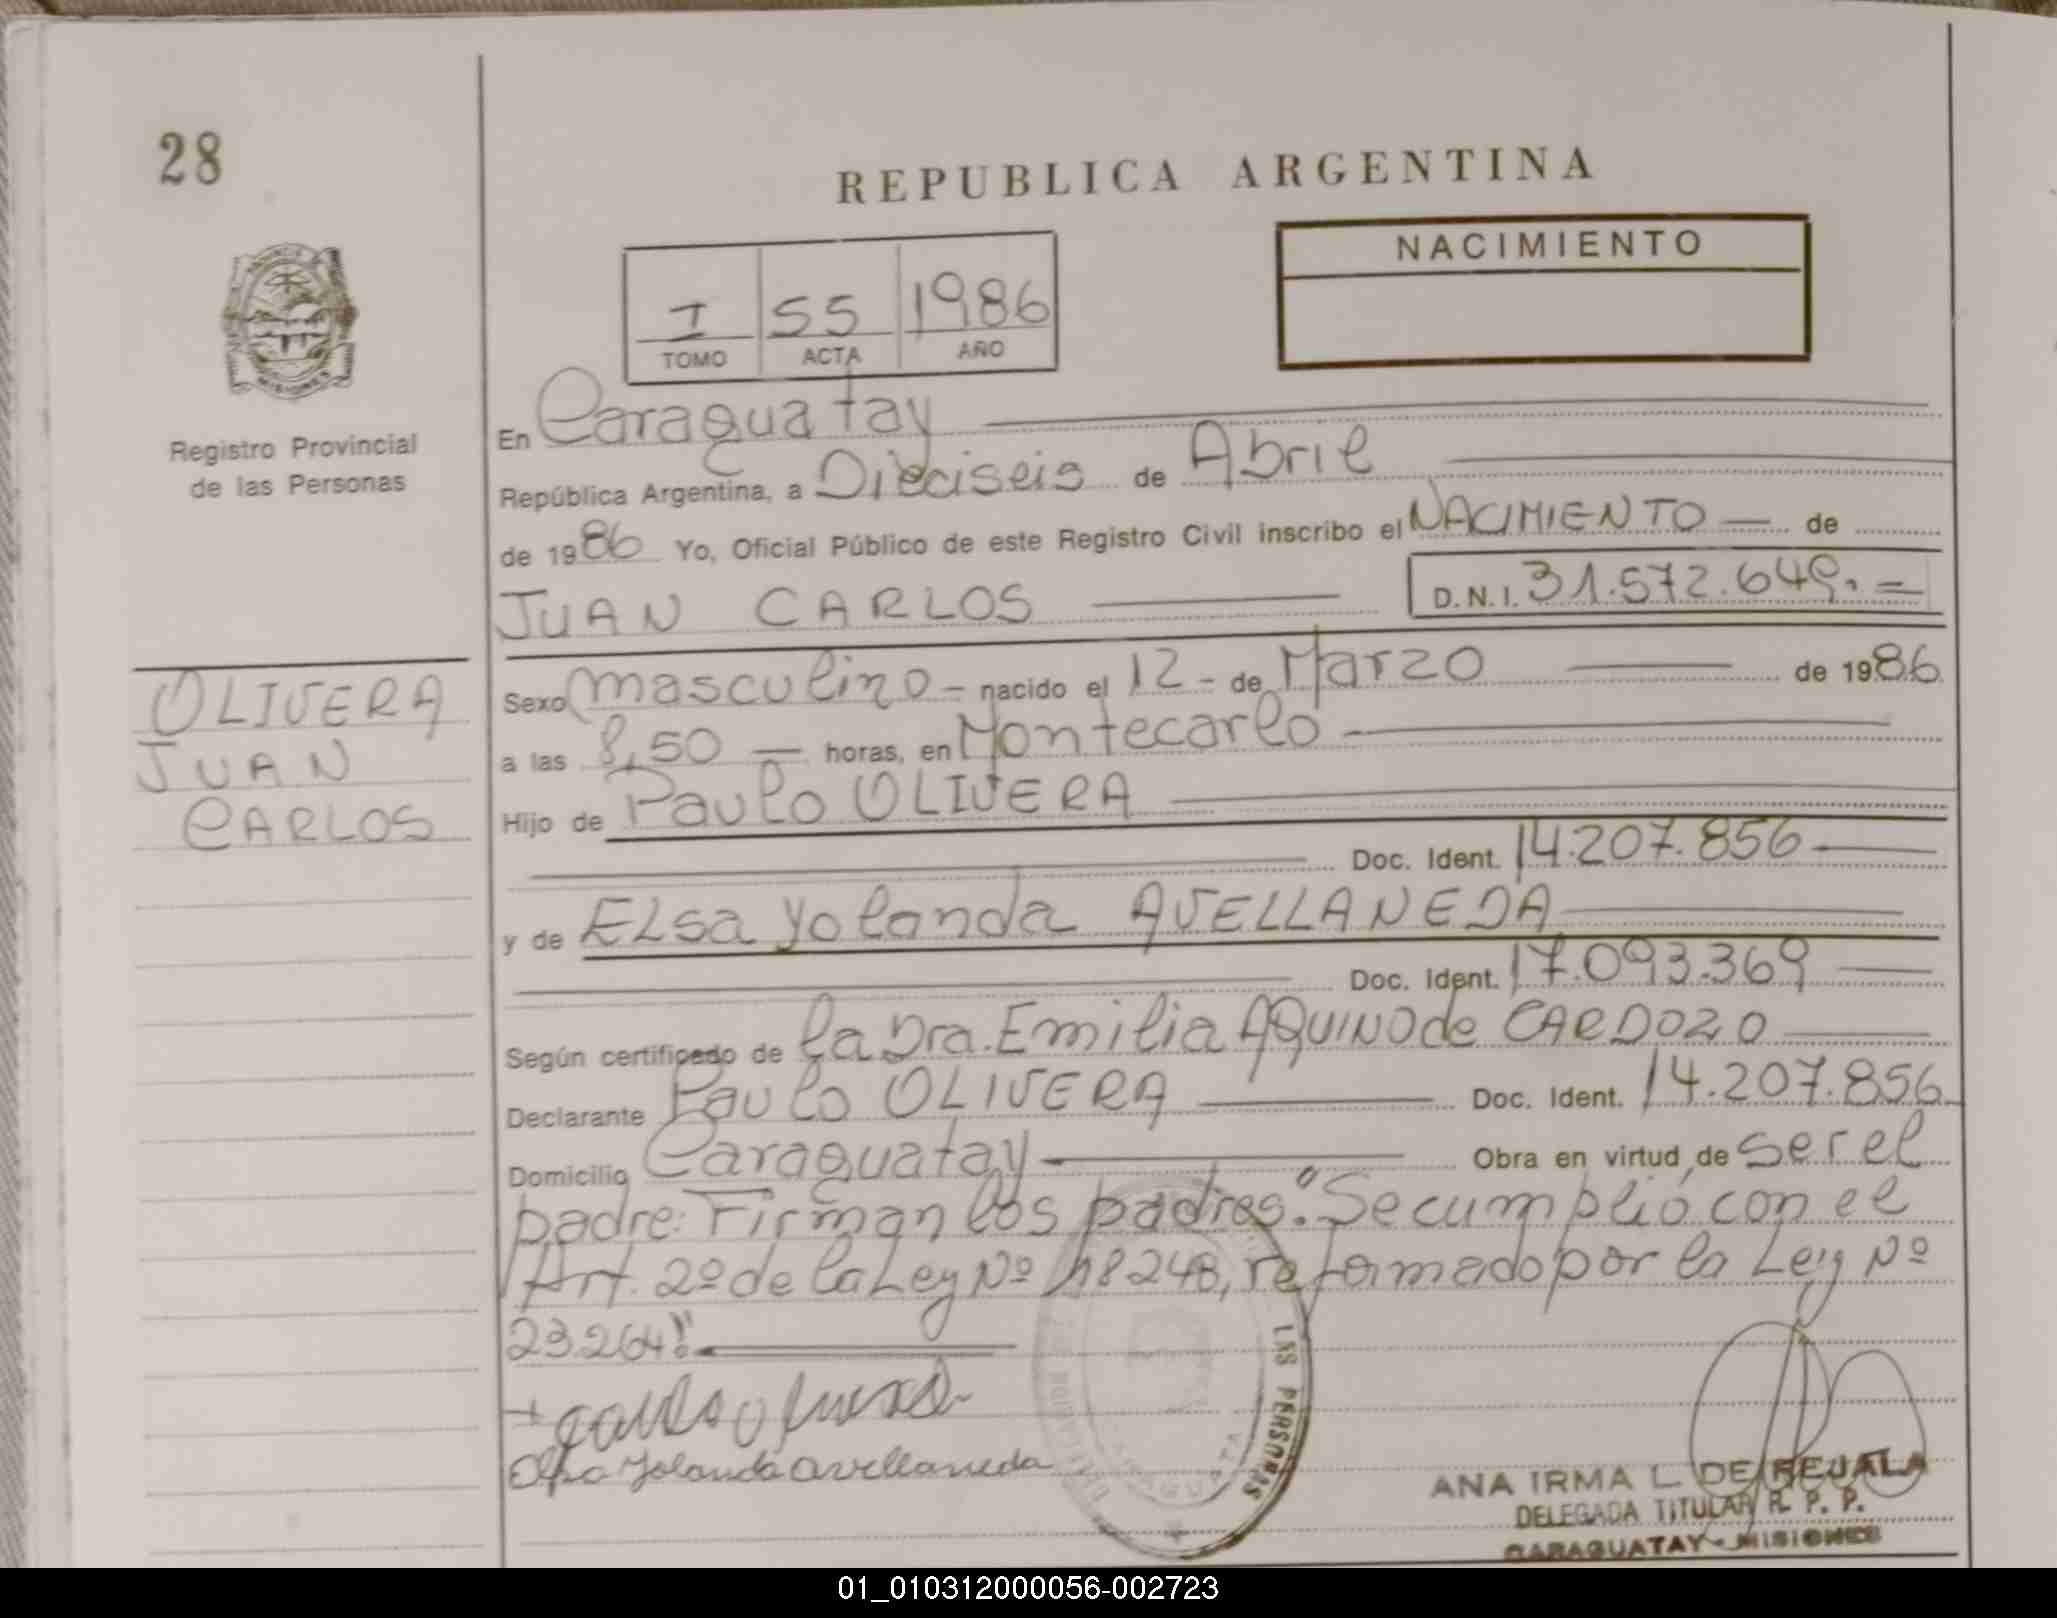 28
REPUBLICA ARGENTINA
NACIMIENTO
I 55 1986
TOMO ACTA AÑO
MISIONES
Registro Provincial
de las Personas
En Caraguatay
República Argentina, a Dieciseis de Abril
de 1986 Yo, Oficial Público de este Registro Civil inscribo el NACIMIENTO — de
JUAN CARLOS D.N.I. 31.572.649.=
OLIVERA
JUAN
CARLOS
Sexo masculino – nacido el 12 – de Marzo de 1986
a las 8,50 — horas, en Montecarlo
Hijo de Paulo OLIVERA
Doc. Ident. 14.207.856
y de ELsa Yolanda AVELLANEDA
Doc. Ident. 17.093.369
Según certificado de la Dra. Emilia AQUINO de CARDOZO
Declarante Paulo OLIVERA Doc. Ident. 14.207.856
Domicilio Caraguatay Obra en virtud de ser el
padre: Firman los padres. "Se cumplió con el
Art. 2º de la Ley Nº 18248, reformado por la Ley Nº
23.264".
Elsa Yolanda Avellaneda
LAS PERSONAS
ANA IRMA L. DE REJALA
DELEGADA TITULAR R. P. P.
CARAGUATAY - MISIONES
01_010312000056-002723